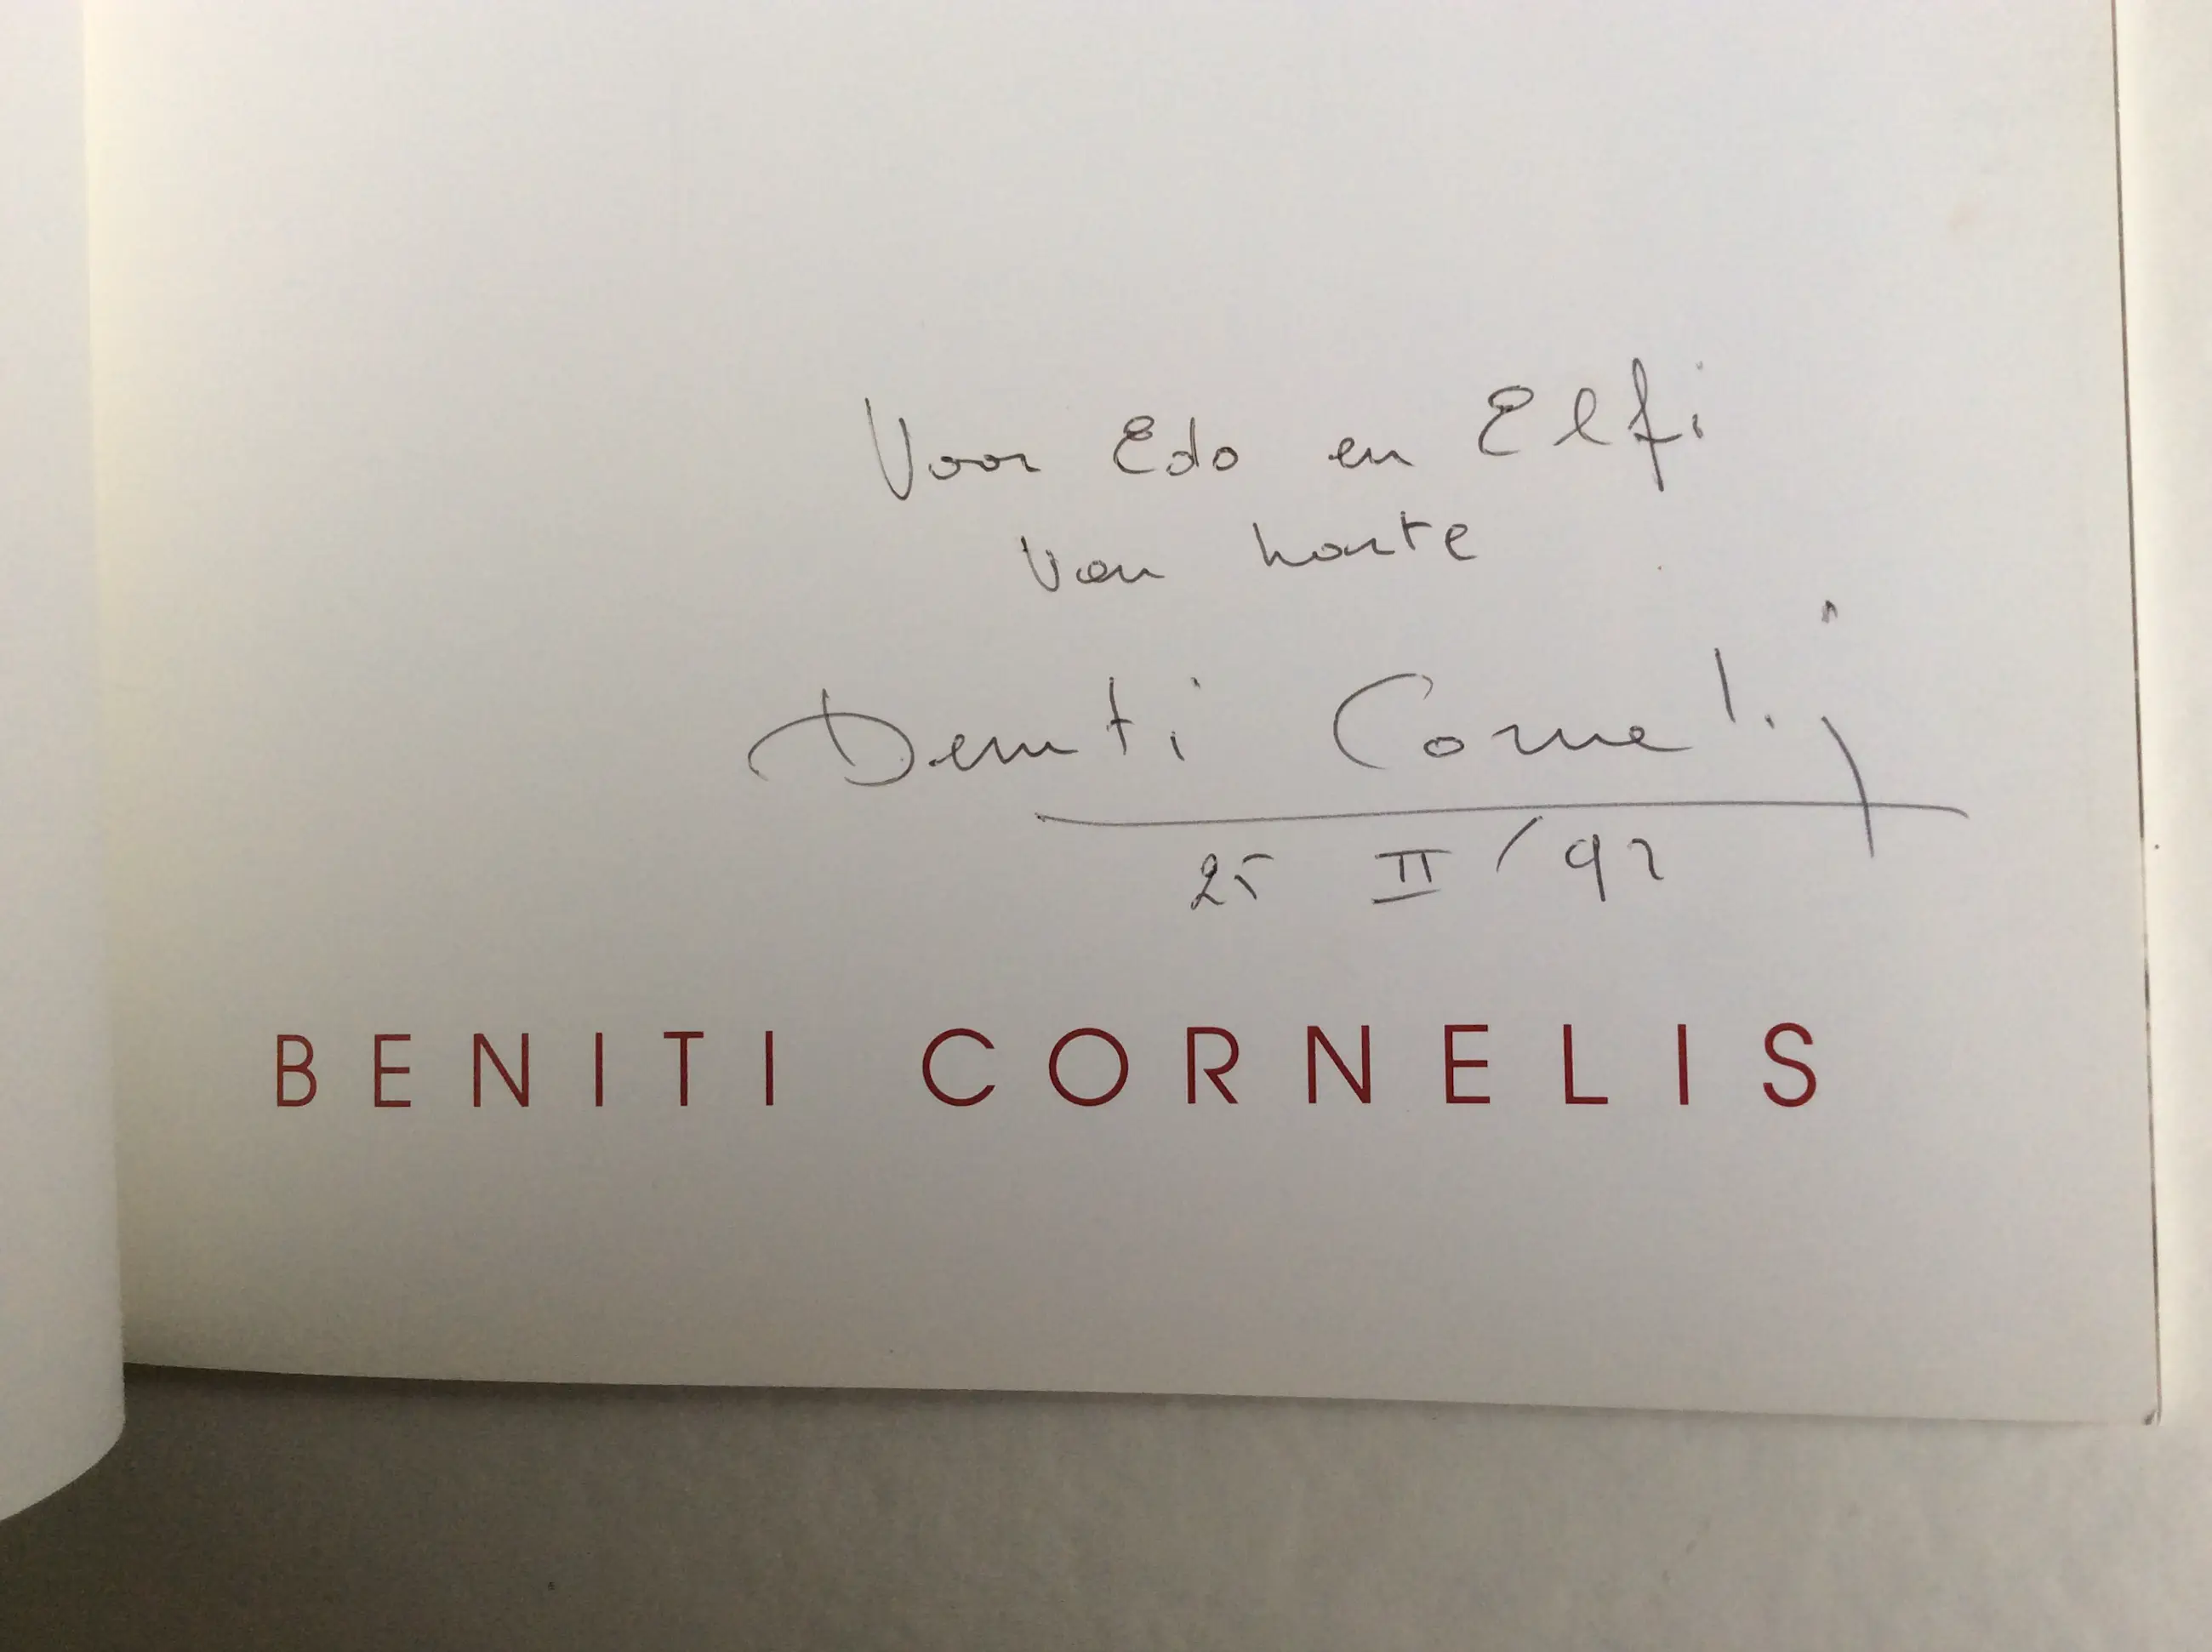 Voor Edo en Elfi
van harte
Beniti Cornelis
25 II / 92
BENITI CORNELIS